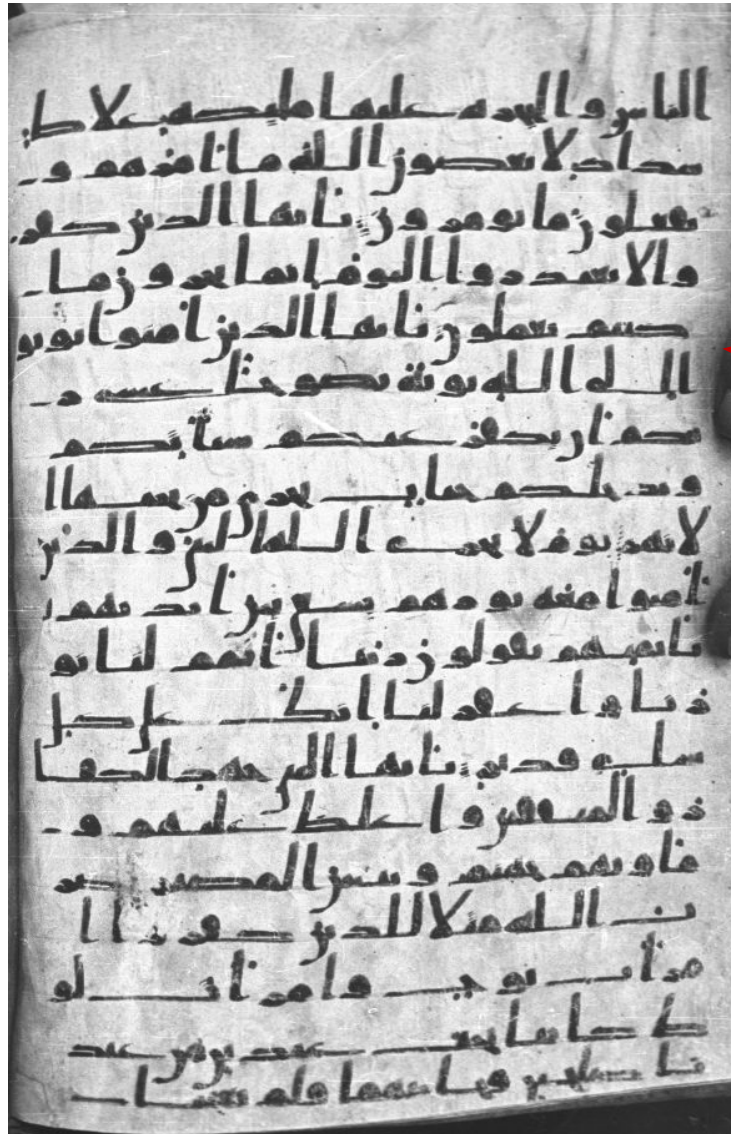 الناس والحجره عليها مليكه غلاظ
شداد لا يعصون الله ما امرهم و
يفعلون ما يومرون يايها الذين كفرو
ا لا تعتذروا اليوم انما تجزون ما
كنتم تعملون يايها الذين امنوا توبو
ا الى الله توبة نصوحا عسى ر
بكم ان يكفر عنكم سياتكم
ويدخلكم جنات تجرى من تحتها ا
لانهر يوم لا يخزى الله النبى والذين
امنوا معه نورهم يسعى بين ايديهم و
بايمنهم يقولون ربنا اتمم لنا نو
رنا واغفر لنا انك على كل
شاى قدير يايها النبى جهد الكفا
ر والمنفقين واغلظ عليهم و
ماويهم جهنم وبئس المصير ضر
ب الله مثلا للذين كفروا ا
مرات نوح وامرات لو
ط كانتا تحت عبدين من عبد
نا صلحين فخانتهما فلم يغنيا